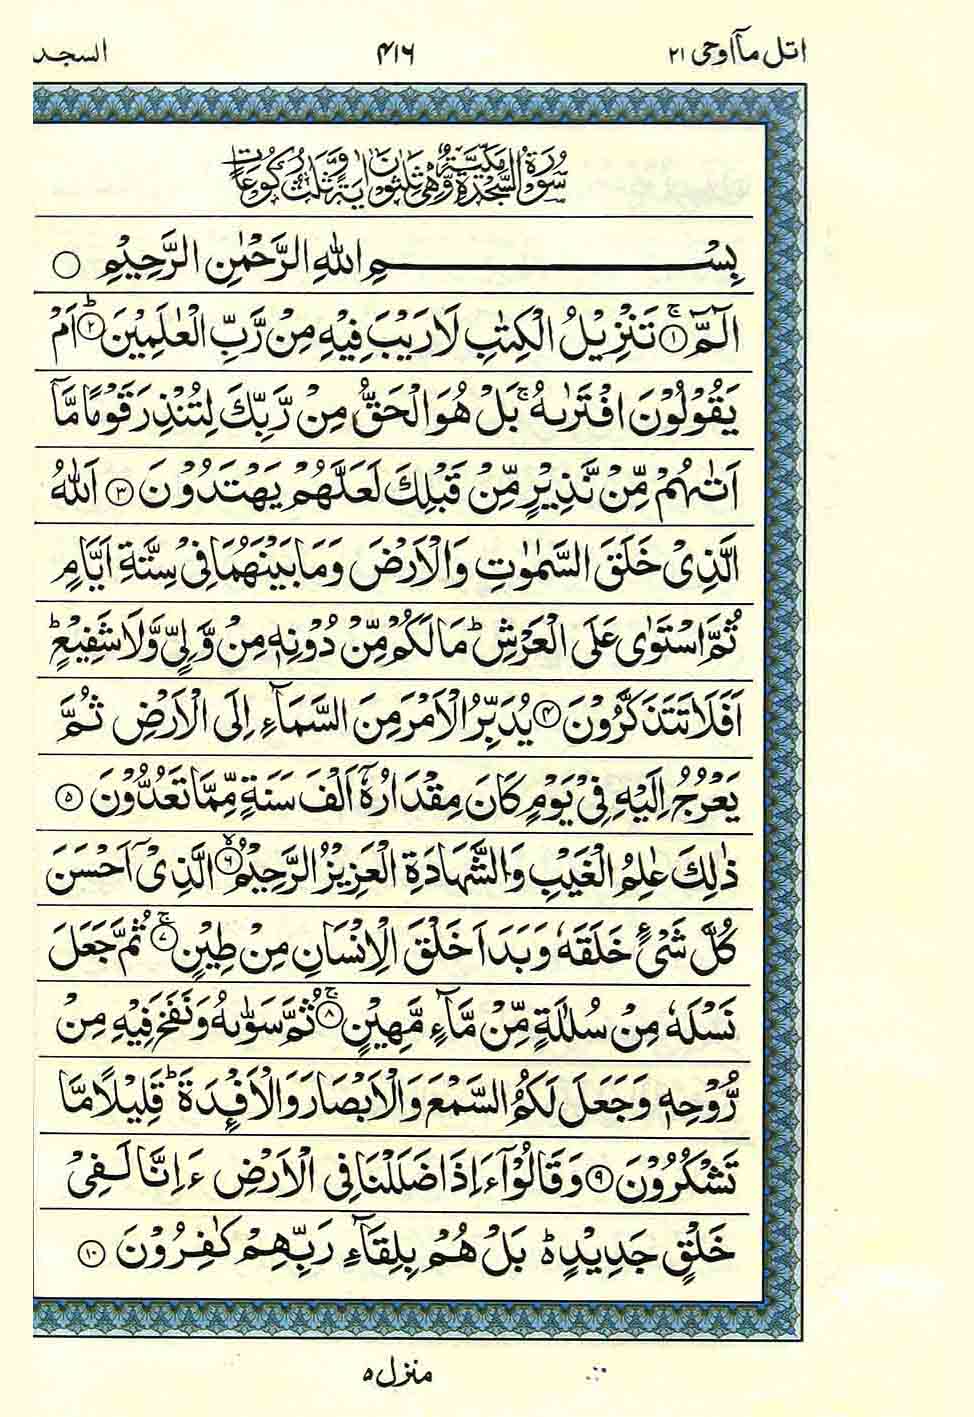 اتل مآاوحی ۲۱
۴۱۶
السجد
سُوْرَةُ السَّجْدَةِ مَكِّيَّةٌ وَّهِيَ ثَلٰثُوْنَ اٰيَةً وَّثَلٰثُ رُكُوْعَاتٍ
بِسْــــــمِ اللّٰهِ الرَّحْمٰنِ الرَّحِيْمِ ○
الٓمّٓ ۚ﴿۱﴾ تَنْزِيْلُ الْكِتٰبِ لَا رَيْبَ فِيْهِ مِنْ رَّبِّ الْعٰلَمِيْنَ ؕ﴿۲﴾ اَمْ
يَقُوْلُوْنَ افْتَرٰىهُ ۚ بَلْ هُوَ الْحَقُّ مِنْ رَّبِّكَ لِتُنْذِرَ قَوْمًا مَّاۤ
اَتٰىهُمْ مِّنْ نَّذِيْرٍ مِّنْ قَبْلِكَ لَعَلَّهُمْ يَهْتَدُوْنَ ﴿۳﴾ اَللّٰهُ
الَّذِيْ خَلَقَ السَّمٰوٰتِ وَالْاَرْضَ وَمَا بَيْنَهُمَا فِيْ سِتَّةِ اَيَّامٍ
ثُمَّ اسْتَوٰى عَلَى الْعَرْشِ ؕ مَا لَكُمْ مِّنْ دُوْنِهٖ مِنْ وَّلِيٍّ وَّلَا شَفِيْعٍ ؕ
اَفَلَا تَتَذَكَّرُوْنَ ﴿۴﴾ يُدَبِّرُ الْاَمْرَ مِنَ السَّمَآءِ اِلَى الْاَرْضِ ثُمَّ
يَعْرُجُ اِلَيْهِ فِيْ يَوْمٍ كَانَ مِقْدَارُهٗۤ اَلْفَ سَنَةٍ مِّمَّا تَعُدُّوْنَ ﴿۵﴾
ذٰلِكَ عٰلِمُ الْغَيْبِ وَالشَّهَادَةِ الْعَزِيْزُ الرَّحِيْمُ ۙ﴿۶﴾ الَّذِيْۤ اَحْسَنَ
كُلَّ شَيْءٍ خَلَقَهٗ وَبَدَاَ خَلْقَ الْاِنْسَانِ مِنْ طِيْنٍ ۚ﴿۷﴾ ثُمَّ جَعَلَ
نَسْلَهٗ مِنْ سُلٰلَةٍ مِّنْ مَّآءٍ مَّهِيْنٍ ۚ﴿۸﴾ ثُمَّ سَوّٰىهُ وَنَفَخَ فِيْهِ مِنْ
رُّوْحِهٖ وَجَعَلَ لَكُمُ السَّمْعَ وَالْاَبْصَارَ وَالْاَفْـِٕدَةَ ؕ قَلِيْلًا مَّا
تَشْكُرُوْنَ ﴿۹﴾ وَقَالُوْۤا ءَاِذَا ضَلَلْنَا فِي الْاَرْضِ ءَاِنَّا لَفِيْ
خَلْقٍ جَدِيْدٍ ۬ؕ بَلْ هُمْ بِلِقَآءِ رَبِّهِمْ كٰفِرُوْنَ ﴿۱۰﴾
منزل ۵